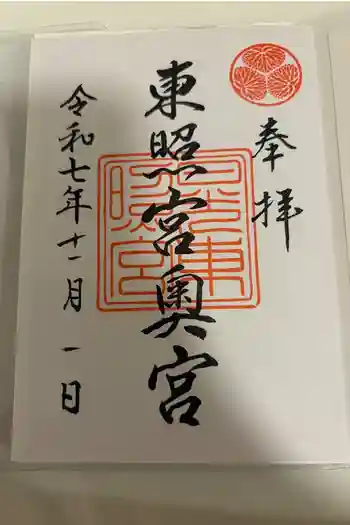 奉拝
東照宮奥宮
令和七年十一月一日